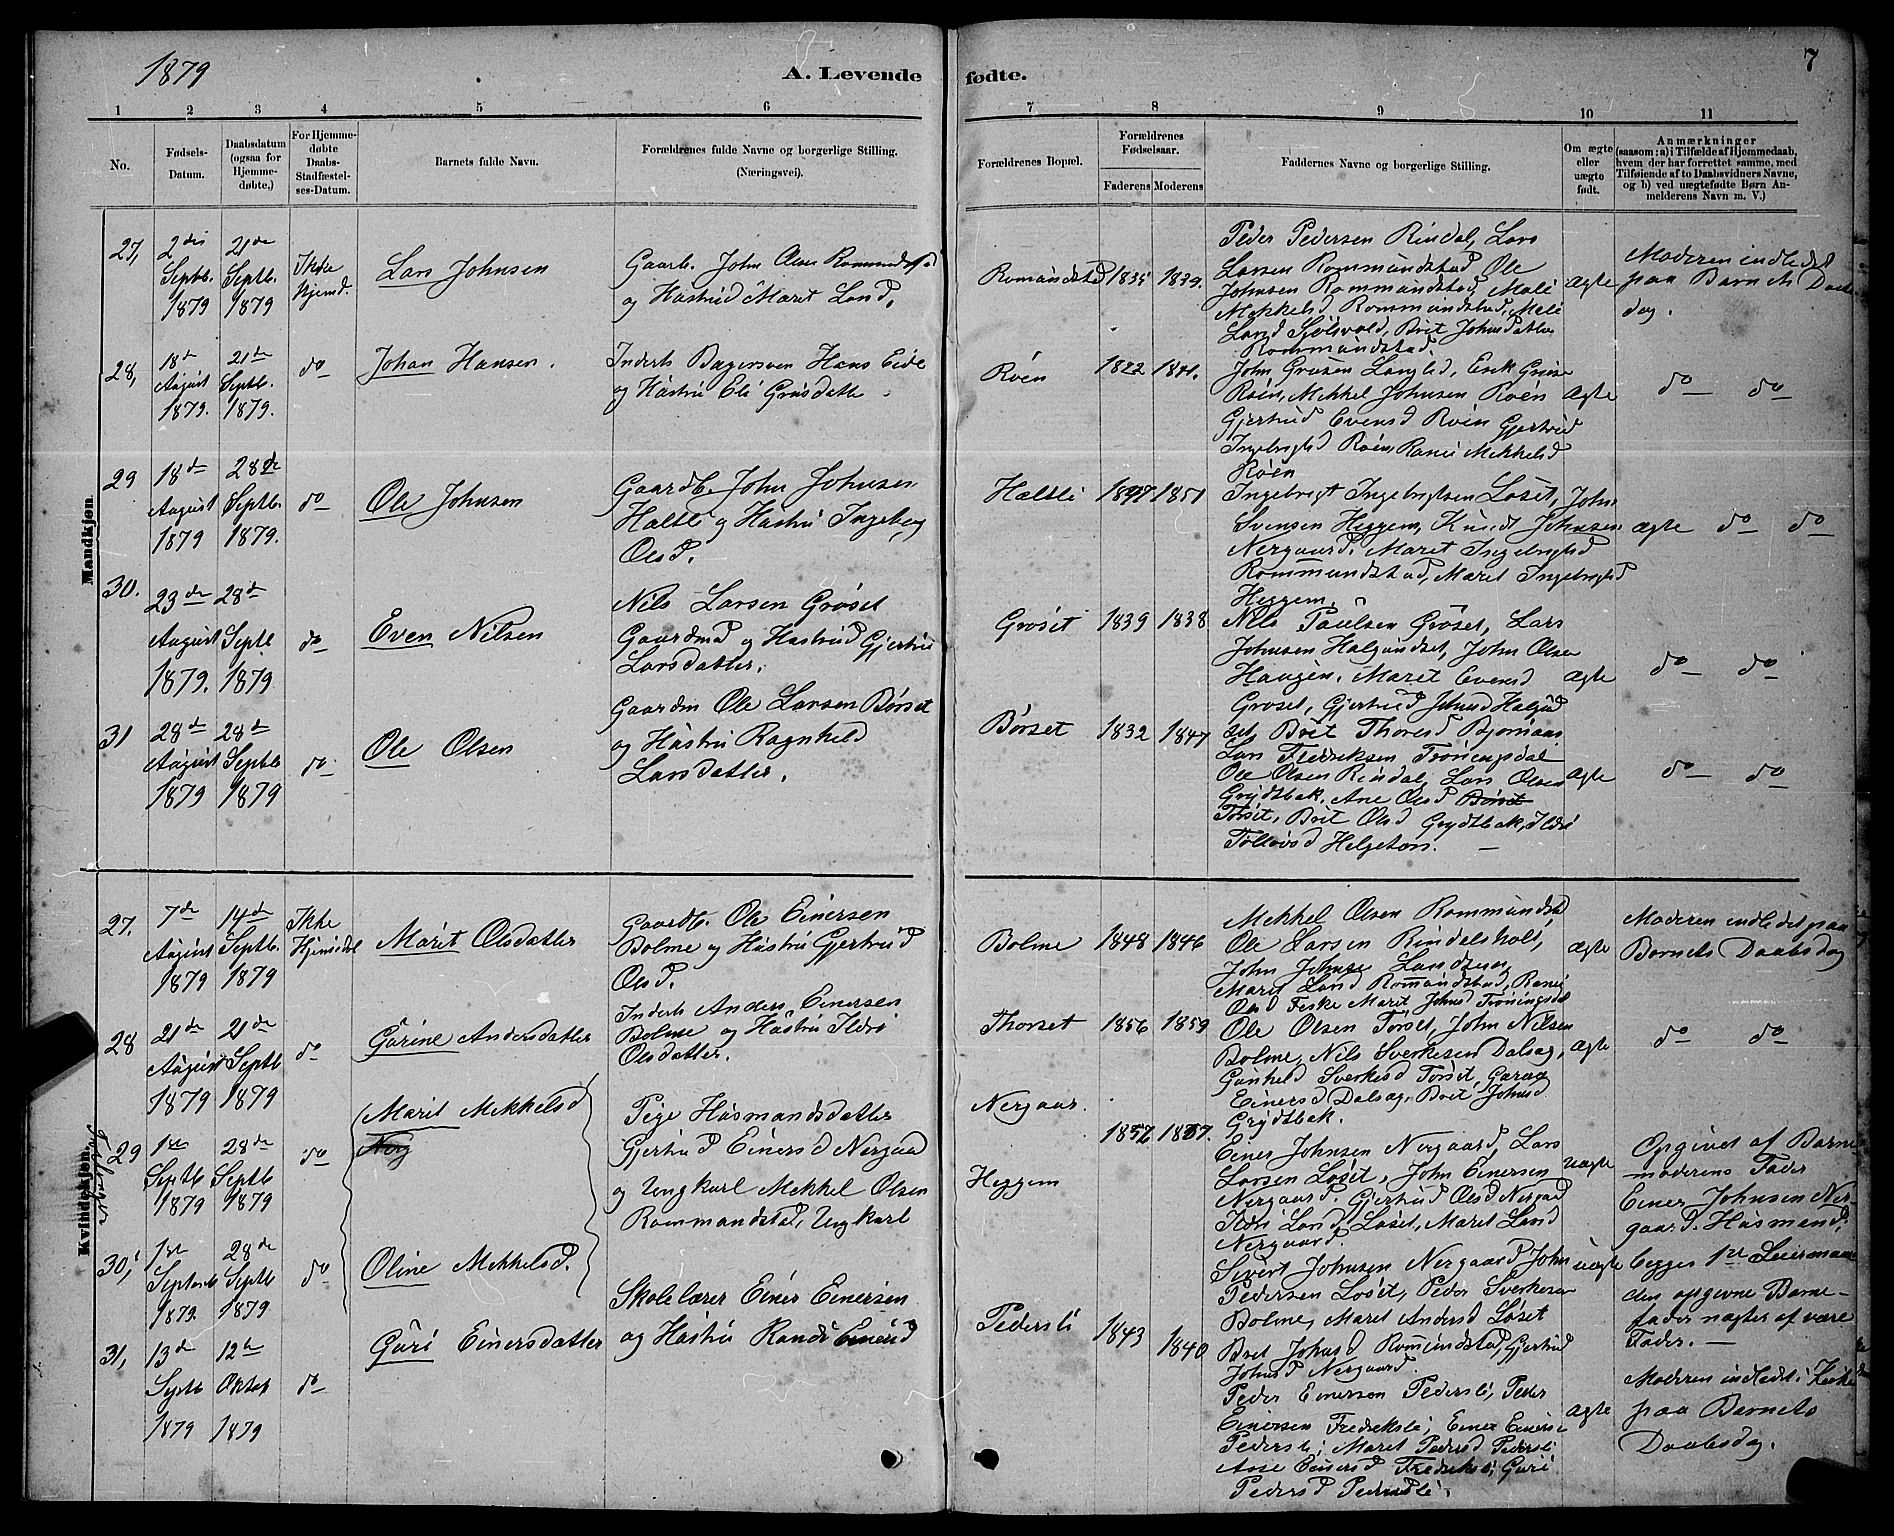 1879
A. Levende fødte.
7
1 2 3 4 5 6 7 8 9 10 11
No.
Fødsels-
Datum.
Daabsdatum
(ogsaa for
Hjemme-
døbte.)
For Hjemme-
døbte
Daabs-
Stadfæstel-
ses-Datum.
Barnets fulde Navn.
Forældrenes fulde Navne og borgerlige Stilling.
(Næringsvei).
Forældrenes Bopæl.
Forældrenes
Fødselsaar.
Faderens Moderens
Faddernes Navne og borgerlige Stilling.
Om ægte
eller
uægte
født.
Anmærkninger
(saasom: a) i Tilfælde af Hjemmedaab,
hvem der har forrettet samme, med
Tilføiende af to Daabsvidners Navne,
og b) ved uægtefødte Børn An-
melderens Navn m. V.)
Mandkjøn
27,
2den
Septb.
1879
21de
Septb.
1879
Ikke
hjemd.
Lars Johnsen
Gaarb. John Olsen
og Hustrue Marit Larsd.
Romundstad
1835
1839.
Peder Pedersen Rindal, Lars
Larsen Rommundstad, Ole
Johnsen Rommundstad, Mali
Mekkelsd Rommundstad, Mali
Larsd Sjølsvold, Brit Johnsdatter
Rommundstad.
ægte
Moderen indledet
paa Barnets Daabs
dag.
28,
18de
August
1879.
21de
Septb.
1879.
do
Johan Hansen.
Inderts Bagersven Hans Eide
og Hustru Eli Gruesdatter
Røen
1822
1841.
John Grusen Langlid, Erik
Røen, Mekkel Johnsen Røen
Gjertrud Evensd Røen Gjertrud
Ingebrigtsd Røen, Ranei Mekkelsd
Røen
Ægte
do do
29
18de
August
1879
28de
Septb.
1879.
do
Ole Johnsen
Gaardb. John Johnsen
Haltli og Hustru Ingeborg
Olsd.
Haltli
1847
1851
Ingebrigt Ingebrigtsen Løset, John
Svensen Heggem, Knudt Johnsen
Nergaard. Maret Ingebrigtsd
Rommundstad, Maret Ingebrigtsd
Heggem.
ægte
do do
30.
23de
August
1879.
28de
Septb
1879
do
Even Nilsen
Nils Larsen Grøset
Gaardmd og Hustrue Gjertru
Larsdatter.
Grøset
1839
1838
Nils Paulsen Grøset, Lars
Johnsen Halgundset, John Olsen
Haugen, Maret Evensd
Grøset, Gjertrud Johnsd Halgund
set, Brit Thoresd Bjørnaas
ægte
do do
31
28de
August
1879
28de
Septb
1879
do
Ole Olsen
Gaardm Ole Larsen Børset
og Hustru Ragnhild
Larsdatter.
Børset
1832
1847
Lars Fredriksen Trøningsdal
Ole Olsen Rindal, Lars Olsen
Grydtbak, Ane Olsd Børset
Torset, Brit Olsd Grydtbak, Ildri
Tollovsd Helgeton.
ægte
do do
Kvindekjøn.
27.
7de
August
1879
14de
Septb.
1879
Ikke
Marit Olsdatter
Gaardb. Ole Einersen
Bolme og Hustru Gjertrud
Olsd.
Bolme
1848
1846
Mekkel Olsen Rommundst
Ole Larsen Rindelsholt,
John Johnsen
Maret Larsd Romundstad, Ranei
Olsd Fiske Marit Johnsd Trøningsdal
ægte
Moderen indledet paa
Barnets Daabsdag
28
21de
August
1879
21de
Septb
1879
do
Gurine Andersdatter
Inderts Anders Einersen
Bolme og Hustru Ildri
Olsdatter.
Thorset
1856
1859
Ole Olsen Torset, John Nilsen
Bolme, Nils Sverkesen Dalsag,
Gunhild Sverkesd Torset, Guraa
Einersd Dalsag, Brit Johnsd
Grydtbak.
ægte
do do
29
1ste
Septb
1879
28de
Septb
1879
do
Marit Mekkelsd
Pige Husmandsdatter
Gjertrud Einersd Nergaad
og Ungkarl Mekkel Olsen
Rommundstad, Ungkarl
Nergaar.
Heggem
1852
1857.
Einer Johnsen Nergaard, Lars
Larsen Løset, John Einersen
Nergaard. Gjertrud Olsd Nergaad
Ildri Larsd Løset, Maret Larsd
Nergaard.
uægte
Opgivet af Barne
moderens Fader
Einer Johnsen Ner-
gaard. Husmand,
30,
1ste
Septemb
1879.
28de
Septb
1879
do
Oline Mekkelsd.
Sivert Johnsen Nergaard John
Pedersen Løset, Peder Sverkesen
Bolme, Maret Andersd Løset
Bret Johnsd Romundstad, Gjertrud
Johnsd Nergaard
uægte
begges 1ste Leiermaal
den opgivne Barne-
fader nægter at være
Fader. —
31,
13de
Septb
1879
12te
Oktob
1879
do
Guri Einersdatter
Skolelærer Einer Einersen
og Hustru Randi Einersd
Pedersli
1843
1840
Peder Einersen Pedersli, Peder
Einersen Fredriksli, Einer Einersen
Pedersli, Maret Pedersd Pedersli
Aase Einersd Fredriksli, Guri
Pedersd Pedersli.
ægte
Moderen indledet i Kirke
paa Barnets
Daabsdag.